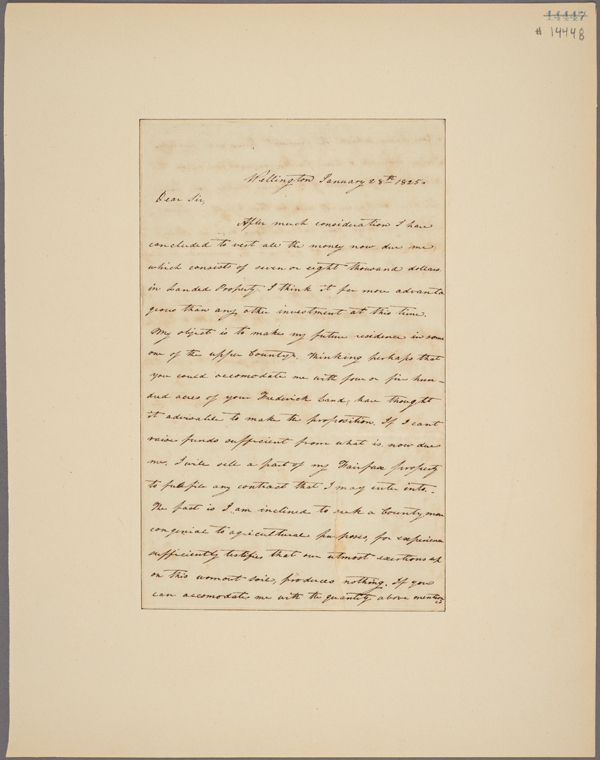 14447
# 14448
Wellington January 28th 1825.
Dear Sir,
After much consideration I have
concluded to vest all the money now due me
which consists of seven or eight thousand dollars
in Landed Property. I think it far more advanta
geous than any other investment at this time.
My object is to make my future residence in some
one of the upper Countys. Thinking perhaps that
you could accomodate me with four or five hun-
dred acres of your Frederick Land, have thought
it adviseable to make the proposition. If I cant
raise funds sufficient from what is now due
me, I will sell a part of my Fairfax property
to fulfile any contract that I may enter into.
The fact is I am inclined to seek a County more
congenial to agricultural purposes, for experience
sufficiently testifies that our utmost exertions up
on this wornout soil, produces nothing. If you
can accomodate me with the quantity above mention
ed